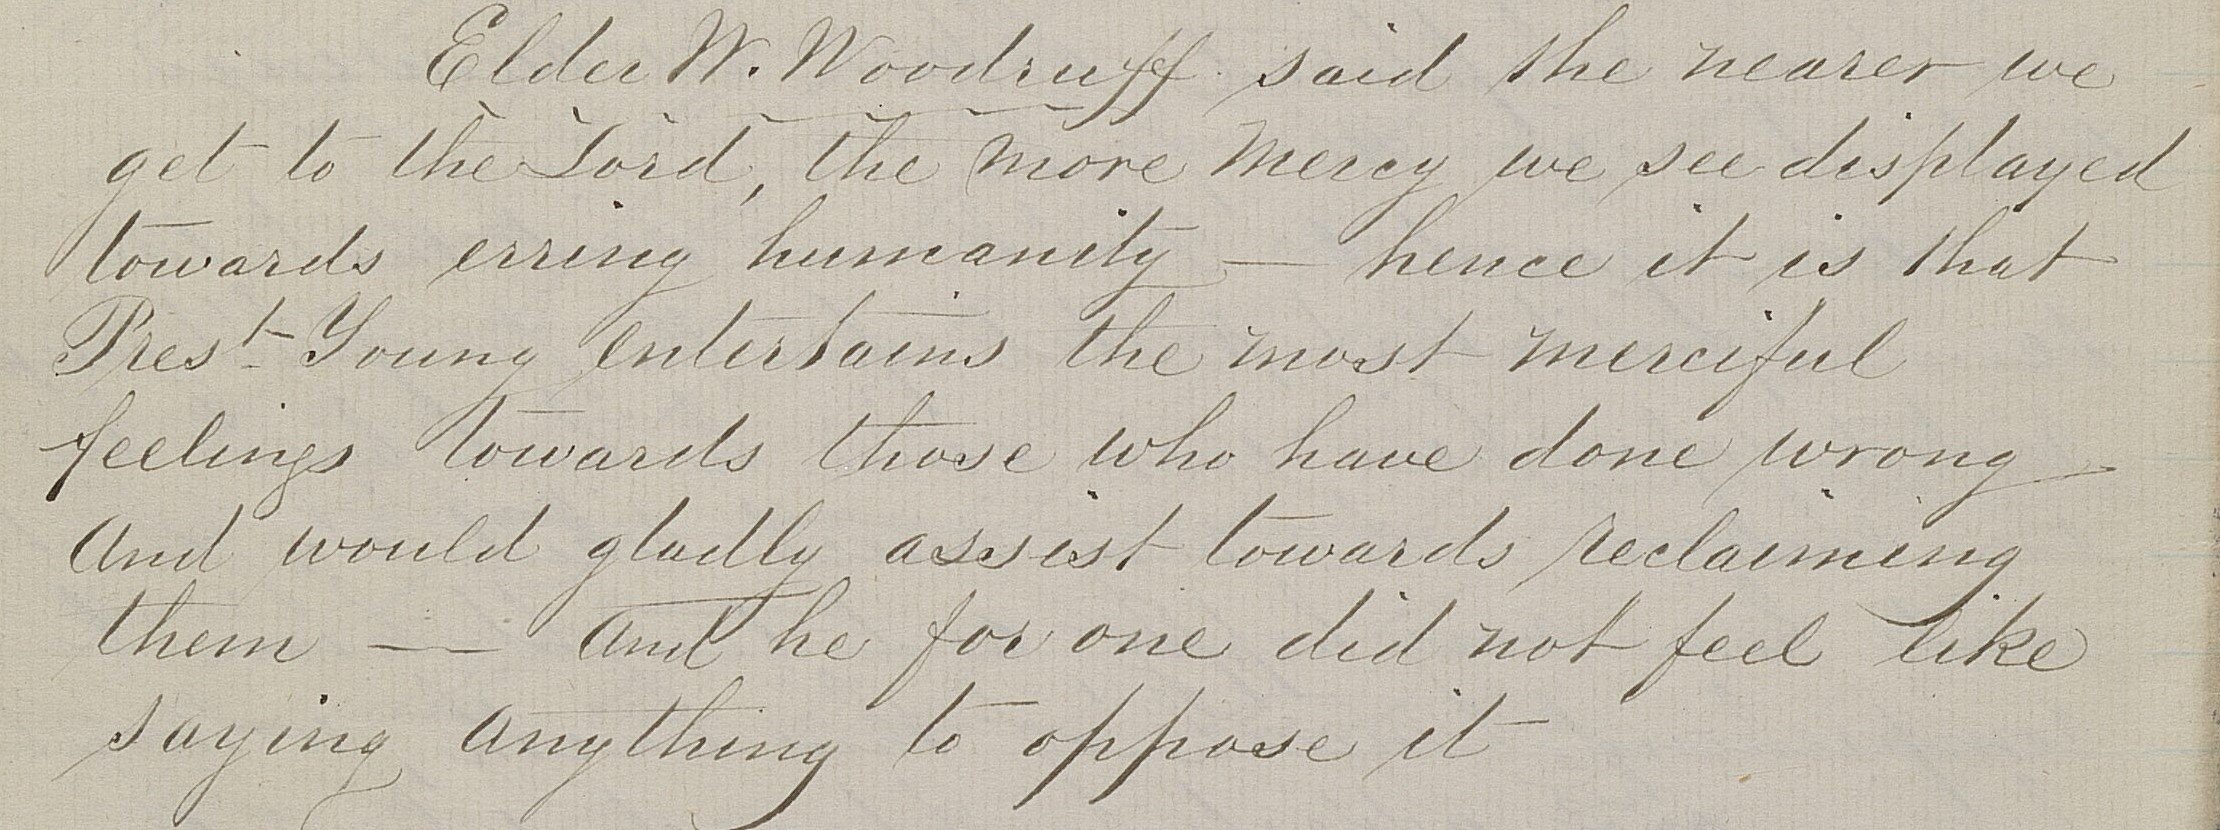 Elder W. Woodruff said the nearer we
get to the Lord, the more mercy we see displayed
towards erring humanity — hence it is that
Prest Young entertains the most merciful
feelings towards those who have done wrong
and would gladly assist towards reclaiming
them — and he for one did not feel like
saying anything to oppose it